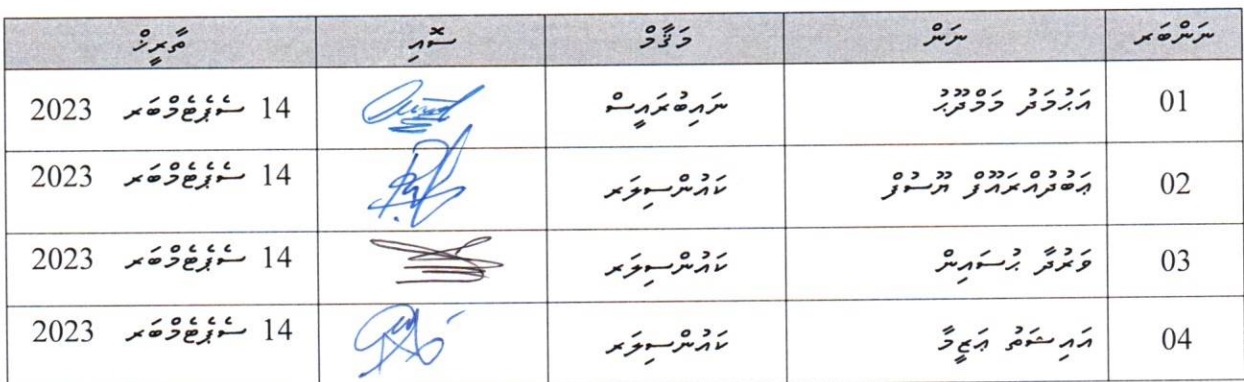 ނަންބަރ ނަން މަޤާމް ސޮއި ތާރީޚް
01 އަޙުމަދު މަމްދޫޙު ނައިބުރައީސް 14 ސެޕެޓެމްބަރ 2023
02 ޢަބުދުއްރައޫފް ޔޫސުފް ކައުންސިލަރ 14 ސެޕެޓެމްބަރ 2023
03 ވަރުދާ ޙުސައިން ކައުންސިލަރ 14 ސެޕެޓެމްބަރ 2023
04 އައިޝަތު ޢަޒީމާ ކައުންސިލަރ 14 ސެޕެޓެމްބަރ 2023